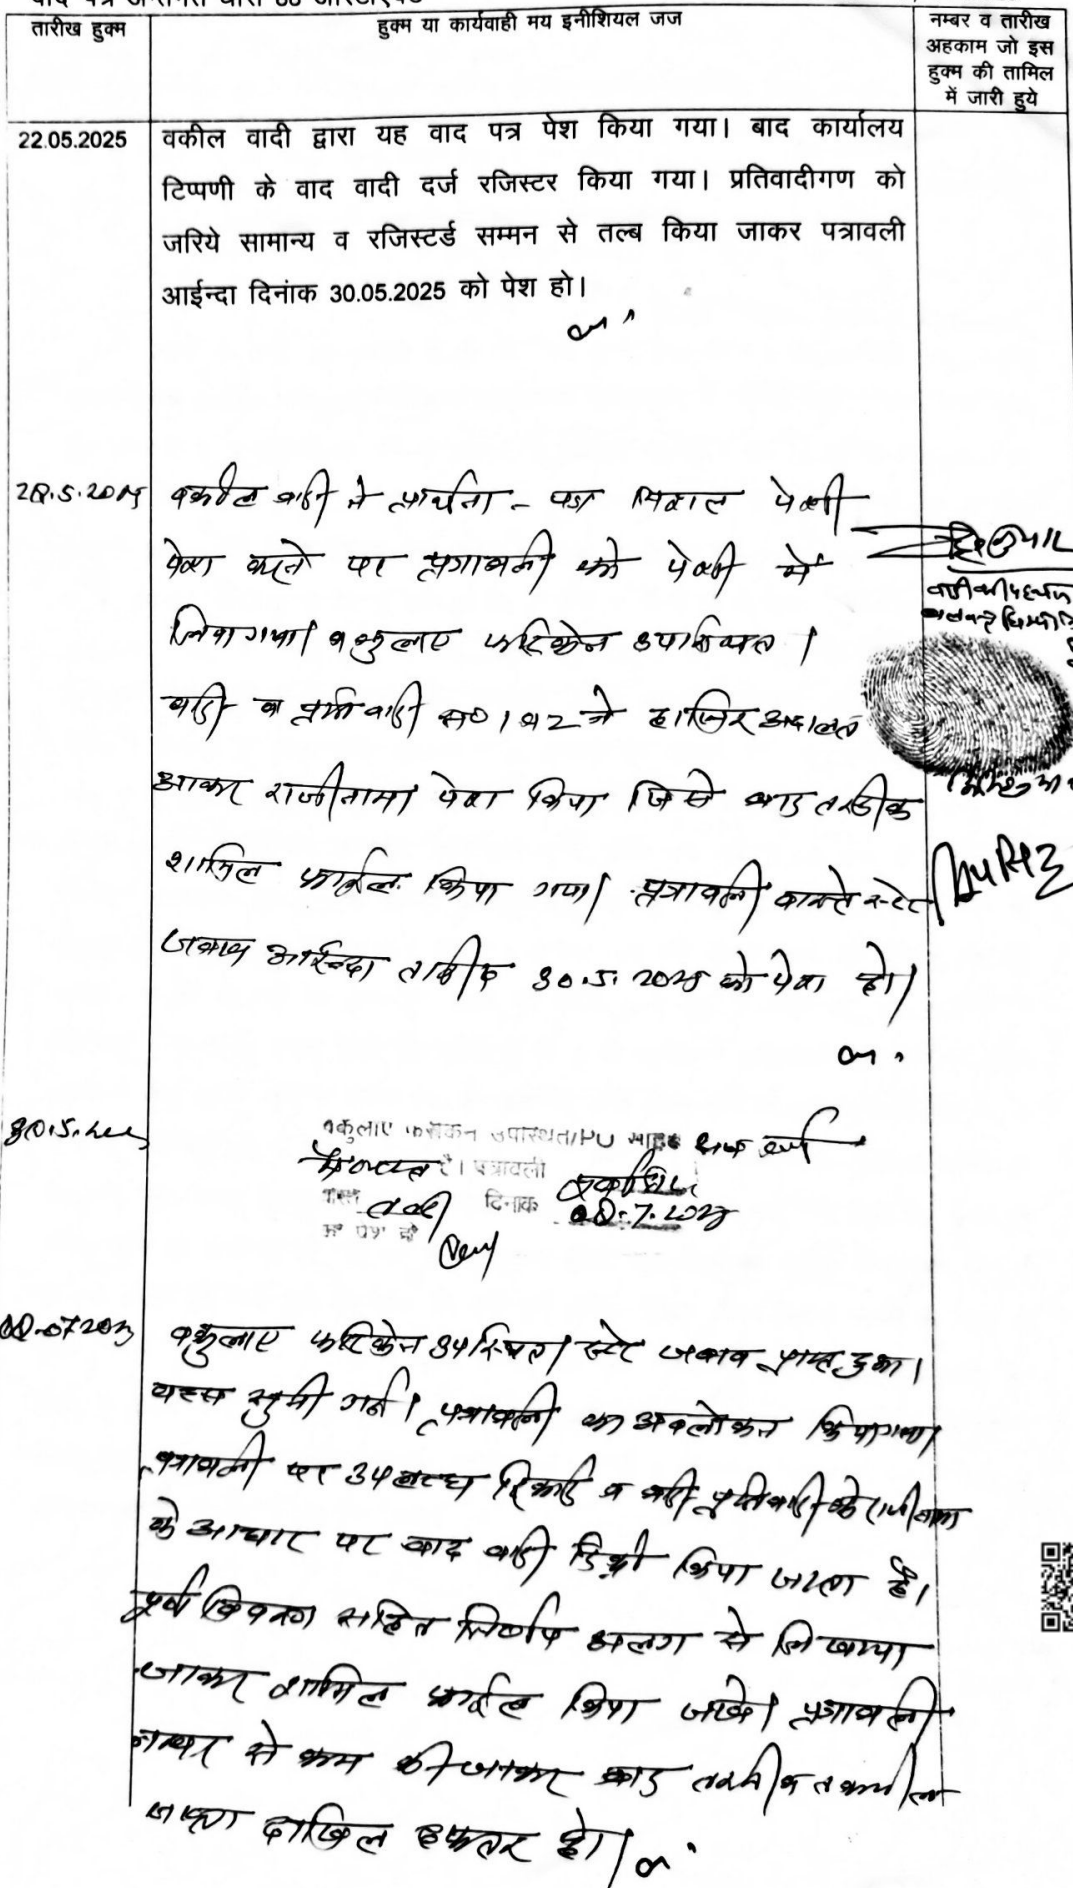 तारीख हुक्म
हुक्म या कार्यवाही मय इनीशियल जज
नम्बर व तारीख
अहकाम जो इस
हुक्म की तामिल
में जारी हुये
22.05.2025
वकील वादी द्वारा यह वाद पत्र पेश किया गया। बाद कार्यालय
टिप्पणी के वाद वादी दर्ज रजिस्टर किया गया। प्रतिवादीगण को
जरिये सामान्य व रजिस्टर्ड सम्मन से तल्ब किया जाकर पत्रावली
आईन्दा दिनांक 30.05.2025 को पेश हो।
वकील वादी ने प्रार्थना - पत्र पेशी
पेश करने पर पत्रावली को पेशी में
लिया गया। वकुलाए फरिकेन उपस्थित।
वादी व प्रतिवादी सं० 1 व 2 ने हाजिर अदालत
आकर राजीनामा पेश किया जिसे बाद तस्दीक
शामिल फाईल किया गया। पत्रावली वास्ते स्टेट
जवाब आईन्दा तारीख 30.5.2025 को पेश हो।
वकुलाए फरीकेन उपस्थित/PO
है। पत्रावली
वास्ते दिनांक
को पेश हो
वकुलाए फरिकेन उपस्थित। स्टेट जवाब प्राप्त हुआ।
बहस सुनी गई। पत्रावली का अवलोकन किया गया।
पत्रावली पर उपलब्ध रिकार्ड व वादी प्रतिवादी के राजीनामा
के आधार पर वाद वादी डिक्री किया जाता है।
पूर्ण विवरण सहित निर्णय अलग से लिखाया
जाकर शामिल फाईल किया जावे। पत्रावली
नम्बर से कम की जाकर बाद तकमील
दाखिल दफ्तर हो।